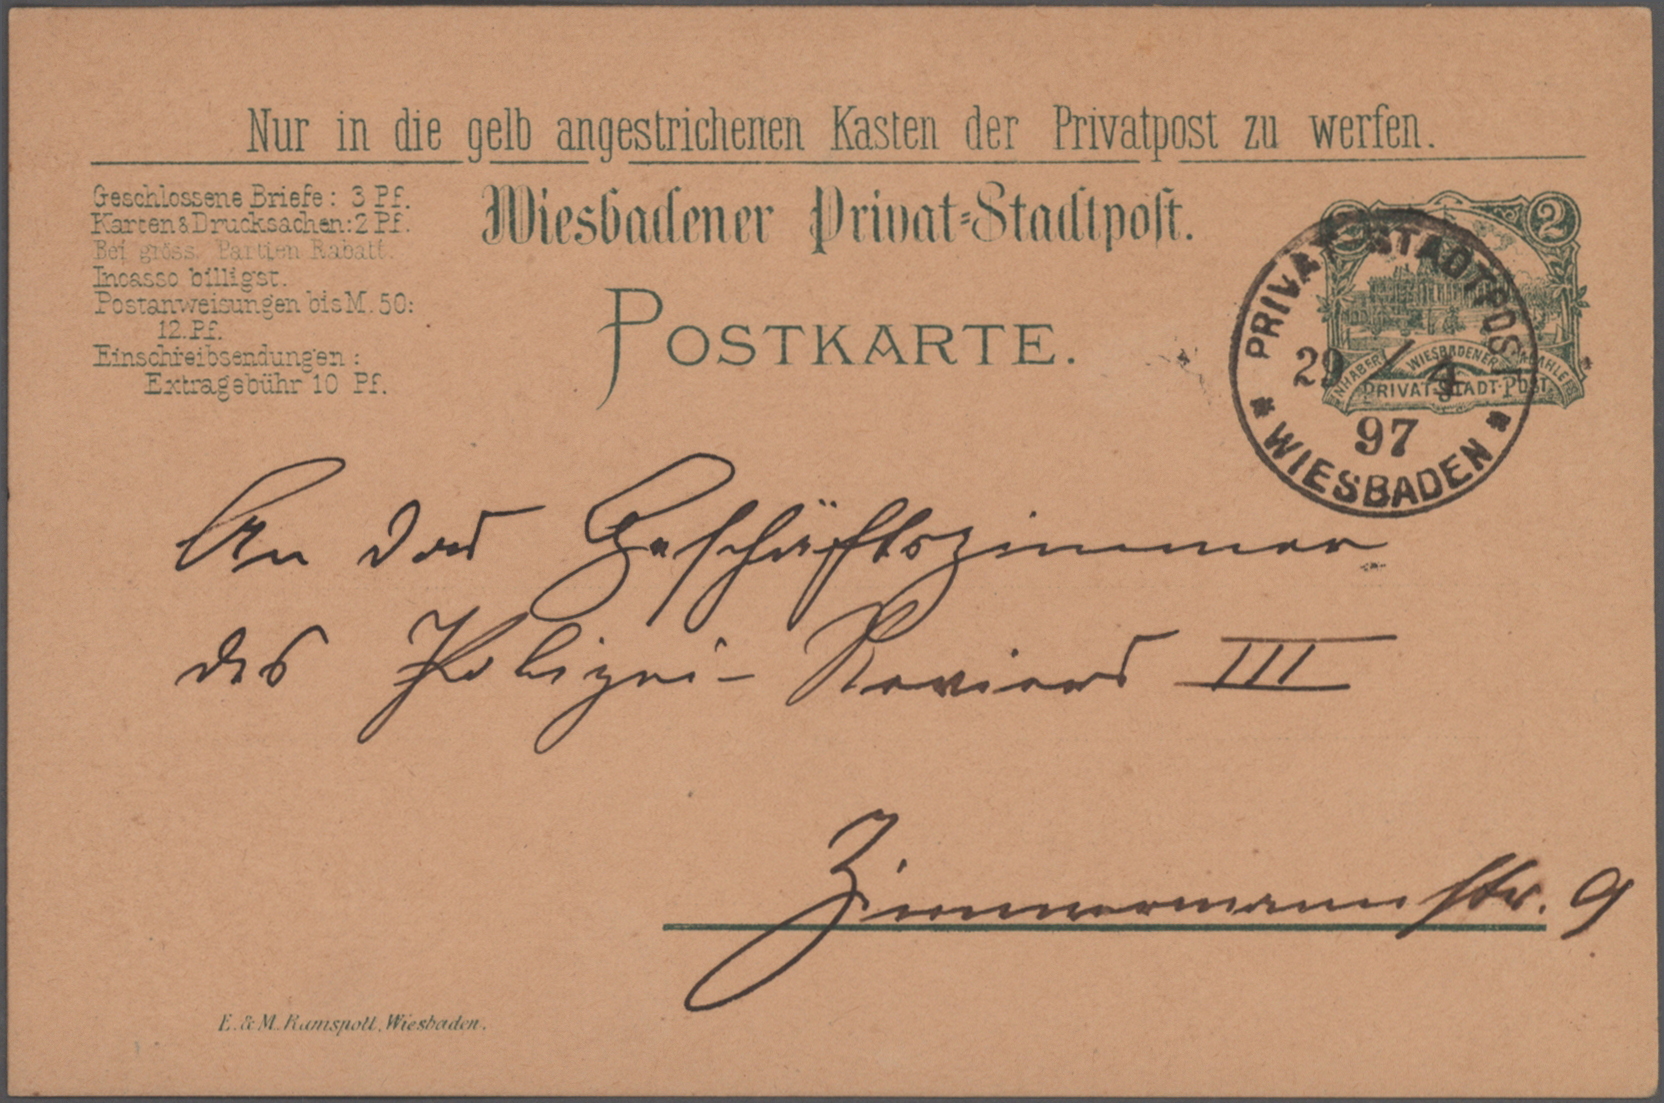 Nur in die gelb angestrichenen Kasten der Privatpost zu werfen.
Geschlossene Briefe: 3 Pf.
Karten & Drucksachen: 2 Pf.
Bei gröss. Partien Rabatt.
Incasso billigst.
Postanweisungen bis M. 50:
12 Pf.
Einschreibsendungen:
Extragebühr 10 Pf.
Wiesbadener Privat-Stadtpost.
POSTKARTE.
2
INHABER
WIESBADENER
PRIVAT-STADT-POST.
PRIVAT STADTPOST
29/4
97
* WIESBADEN *
An das Geschäftszimmer
des Polizei-Reviers III
Zimmermannstr. 9
E. & M. Ramspott, Wiesbaden.